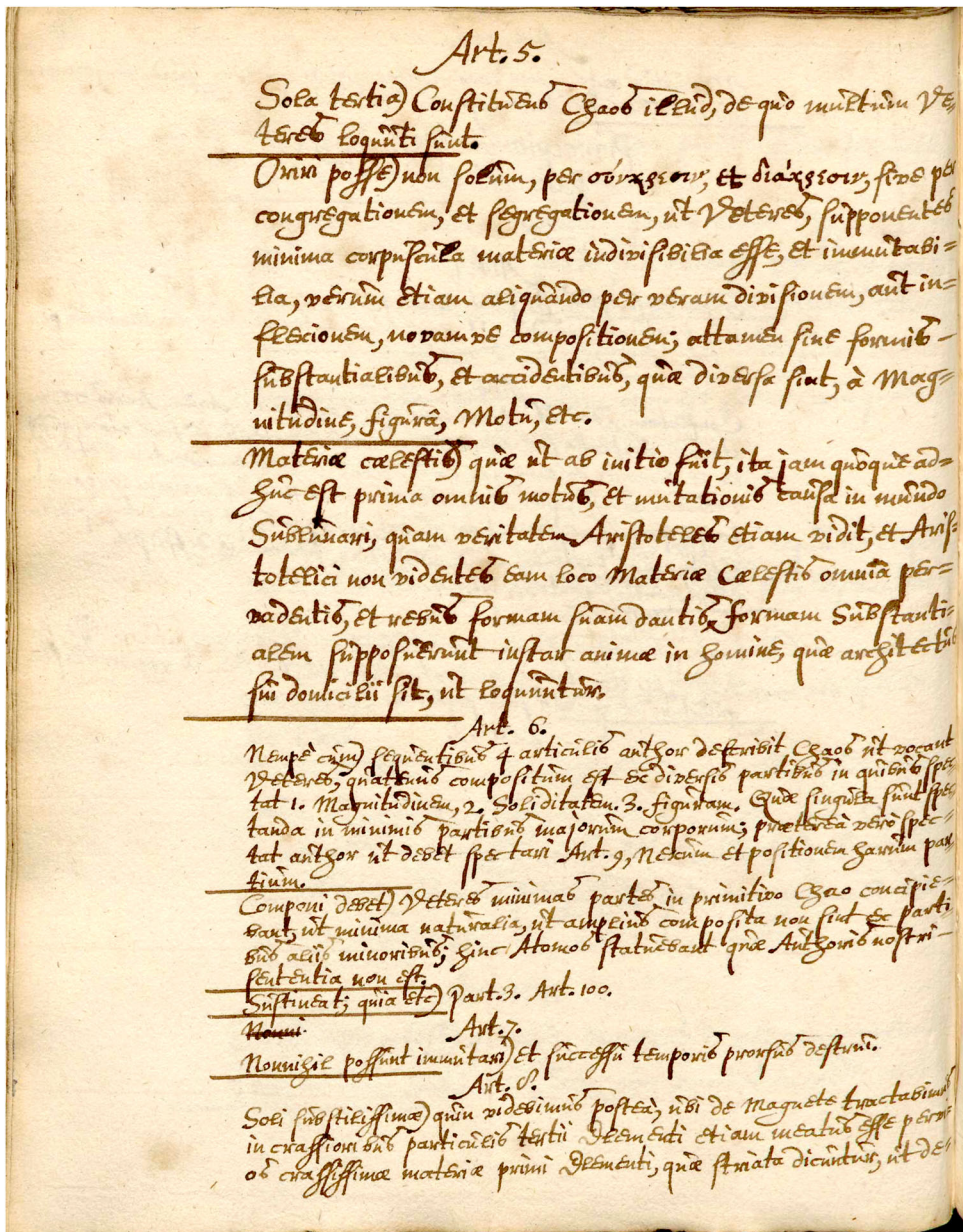 Art. 5.
Sola tertia) Constituens Chaos illud, de quo multum Ve=
teres loquuti sunt.
Oriri posse) non solum, per σύγκρισιν, et διάκρισιν, sive per
congregationem, et segregationem, ut Veteres, supponentes
minima corpuscula materiæ indivisibilia esse, et immutabi=
lia, verum etiam aliquando per veram divisionem, aut in=
flexionem, novamve compositionem; attamen sine formis –
substantialibus, et accidentibus, quæ diversa sint, à Mag=
nitudine, figurâ, Motu, etc.
Materiæ cælestis) quæ ut ab initio fuit, ita jam quoque ad=
huc est prima omnis motus, et mutationis causa in mundo
Sublunari, quam veritatem Aristoteles etiam vidit, et Aris=
totelici non videntes eam loco Materiæ Cælestis omnia per=
vadentis, et rebus formam suam dantis, formam Substanti=
alem supposuerunt instar animæ in homine, quæ architectus
sui domicilii sit, ut loquuntur.
Art. 6.
Nempè cùm) sequentibus 4 articulis author describit Chaos ut vocant
Veteres, quatenus compositum est ex diversis partibus in quibus spec=
tat 1. Magnitudinem, 2. Soliditatem. 3. figuram. Quæ singula sunt spec=
tanda in minimis partibus majorum corporum; prætereà verò spec=
tat author ut debet spectari Art. 9, Nexum et positionem harum par=
tium.
Componi debet) Veteres minimas partes in primitivo Chao concipie=
bant, ut minima naturalia, ut amplius composita non sint ex parti
bus aliis minoribus; hinc Atomos statuebant quæ Authoris nostri –
sententia non est.
Sustineat; quia etc) Part. 3. Art. 100.
Nonni.
Art. 7.
Nonnihil possunt immutari) et successu temporis prorsus destrui.
Art. 8.
Soli substilissimæ) quin videbimus posteà, ubi de Magnete tractabimus
in crassioribus particulis tertii Elementi etiam meatus esse pervi=
os crassissimæ materiæ primi Elementi, quæ striata dicuntur, ut de=